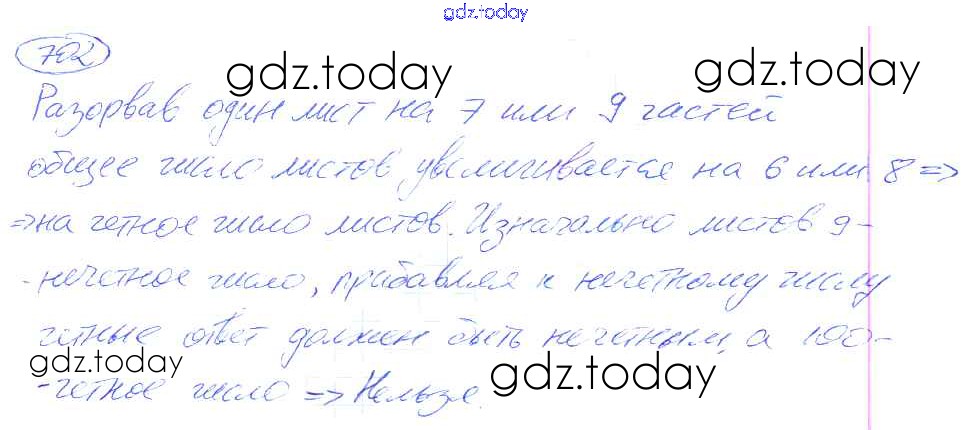 gdz.today
702
gdz.today
gdz.today
Разорвав один лист на 7 или 9 частей
общее число листов увеличивается на 6 или 8 =>
=> на четное число листов. Изначально листов 9 -
- нечетное число, прибавляя к нечетному числу
четные ответ должен быть нечетным, а 100 -
gdz.today
gdz.today
- четное число => Нельзя.